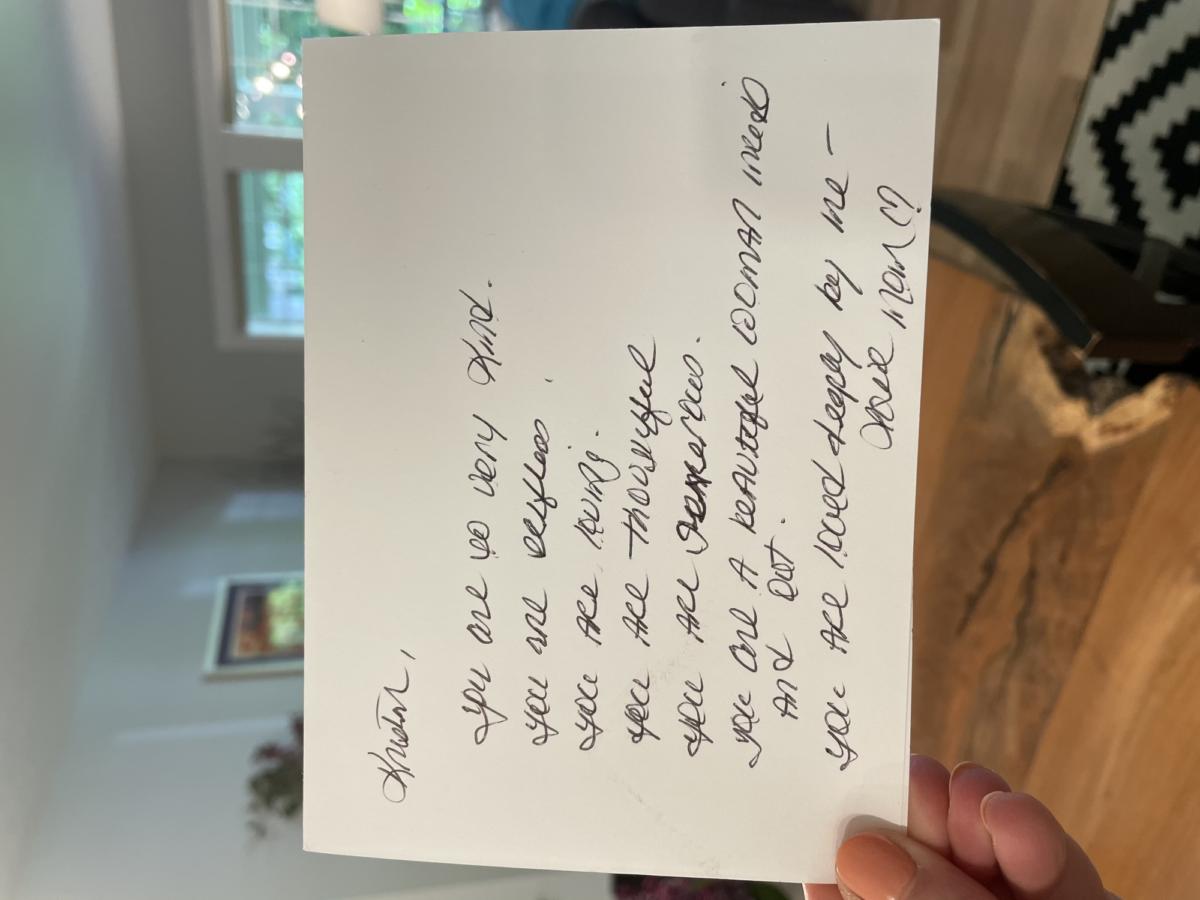 Kristin,
you are so very kind.
you are selfless.
you are loving.
you are thoughtful
you are generous.
you are a beautiful woman inside
and out.
you are loved deeply by me –
Love Mom ♡